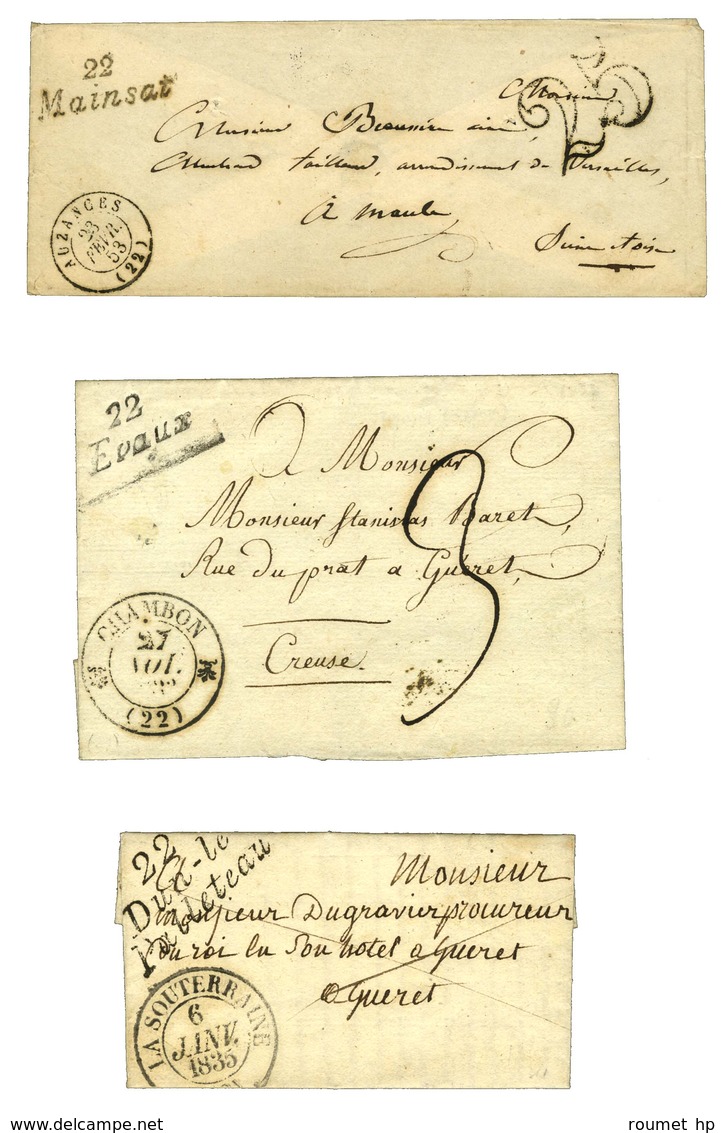 22
Mainsat
25
Monsieur
Monsieur Beaussire ainé,
Marchand tailleur, arrondissement de Versailles,
A Maule,
Seine et oise
AUZANCES
23
FEVR.
53
(22)
22
Evaux
A Monsieur
Monsieur Stanislas Baret,
Rue du prat a Guéret,
Creuse.
3
CHAMBON
27
NOV.
(22)
22
Dun-le
Palleteau
A Monsieur
monsieur Dugravier procureur
du roi en Son hotel a Gueret
a Gueret
LA SOUTERRAINE
6
JANV.
1835
© roumet hp